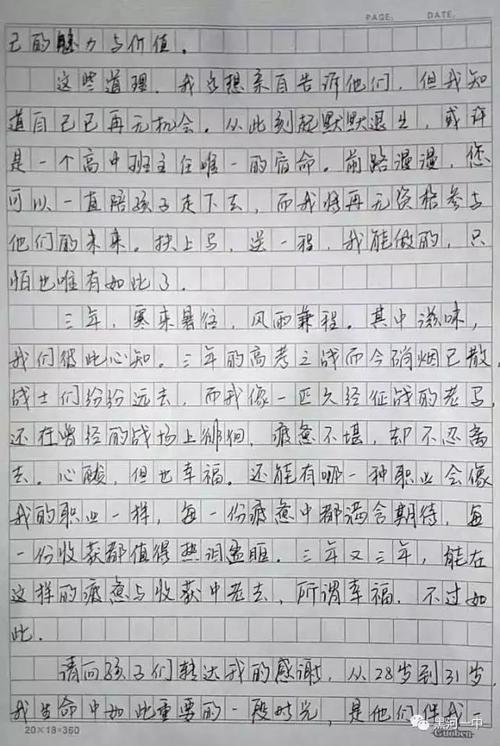 PAGE. DATE.
己的魅力与价值。
这些道理，我也想亲自告诉他们，但我知
道自己已再无机会。从此刻起默默退出，或许
是一个高中班主任唯一的宿命。前路漫漫，您
可以一直陪孩子走下去，而我将再无资格参与
他们的未来。扶上马，送一程，我能做的，只
怕也唯有如此了。
三年，寒来暑往，风雨兼程。其中滋味，
我们彼此心知。三年的高考之战而今硝烟已散，
战士们纷纷远去，而我像一匹久经征战的老马，
还在曾经的战场上徘徊，疲惫不堪，却不忍离
去。心酸，但也幸福。还能有哪一种职业会像
我的职业一样，每一份疲惫中都满含期待，每
一份收获都值得热泪盈眶。三年又三年，能在
这样的疲惫与收获中老去，所谓幸福，不过如
此。
请向孩子们转达我的感谢，从28岁到31岁，
我生命中如此重要的一段时光，是他们伴我一
20×18=360
Guoben
黑河一中